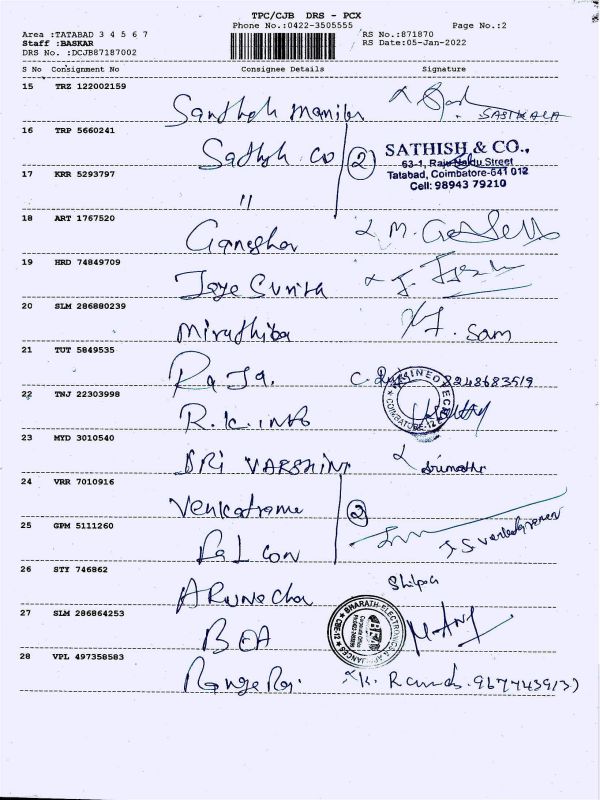 TPC/CJB DRS - PCX
Phone No.:0422-3505555
Page No.:2
Area :TATABAD 3 4 5 6 7
Staff :BASKAR
DRS No. :DCJB87187002
RS No.:871870
RS Date:05-Jan-2022
S No Consignment No Consignee Details Signature
15 TRZ 122002159
SASIKALA
16 TRP 5660241
Sathish Co 2
SATHISH & CO.,
63-1, Raju Naidu Street
Tatabad, Coimbatore-641 012
Cell: 98943 79210
17 KRR 5293797
"
18 ART 1767520
M. Ganesh
19 HRD 74849709
Jaye Sunita
20 SLM 286880239
Miruthiba
Sam
21 TUT 5849535
Raja
8248683519
22 TNJ 22303998
R.K. INFO
23 MYD 3010540
SRI VARSHINI
24 VRR 7010916
Venkatrama 2
25 GPM 5111260
Falcon
26 STY 746862
Arunachal
Shilpa
27 SLM 286864253
BEA
BHARATH ELECTRONICS & APPLIANCES
CBE-12
28 VPL 497358583
Rangaraj